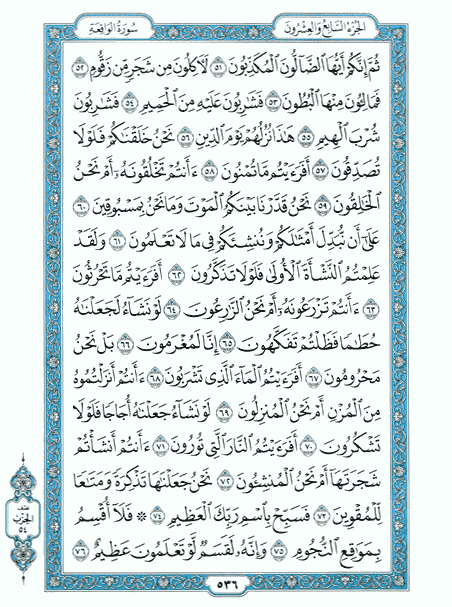 سُورَةُ الوَاقِعَةِ
الجُزْءُ السَّابِعُ وَالعِشْرُونَ
ثُمَّ إِنَّكُمْ أَيُّهَا ٱلضَّآلُّونَ ٱلْمُكَذِّبُونَ ٥١ لَأَكِلُونَ مِن شَجَرٍ مِّن زَقُّومٍ ٥٢
فَمَالِـُٔونَ مِنْهَا ٱلْبُطُونَ ٥٣ فَشَٰرِبُونَ عَلَيْهِ مِنَ ٱلْحَمِيمِ ٥٤ فَشَٰرِبُونَ
شُرْبَ ٱلْهِيمِ ٥٥ هَٰذَا نُزُلُهُمْ يَوْمَ ٱلدِّينِ ٥٦ نَحْنُ خَلَقْنَٰكُمْ فَلَوْلَا
تُصَدِّقُونَ ٥٧ أَفَرَءَيْتُم مَّا تُمْنُونَ ٥٨ ءَأَنتُمْ تَخْلُقُونَهُۥٓ أَمْ نَحْنُ
ٱلْخَٰلِقُونَ ٥٩ نَحْنُ قَدَّرْنَا بَيْنَكُمُ ٱلْمَوْتَ وَمَا نَحْنُ بِمَسْبُوقِينَ ٦٠
عَلَىٰٓ أَن نُّبَدِّلَ أَمْثَٰلَكُمْ وَنُنشِئَكُمْ فِى مَا لَا تَعْلَمُونَ ٦١ وَلَقَدْ
عَلِمْتُمُ ٱلنَّشْأَةَ ٱلْأُولَىٰ فَلَوْلَا تَذَكَّرُونَ ٦٢ أَفَرَءَيْتُم مَّا تَحْرُثُونَ
٦٣ ءَأَنتُمْ تَزْرَعُونَهُۥٓ أَمْ نَحْنُ ٱلزَّٰرِعُونَ ٦٤ لَوْ نَشَآءُ لَجَعَلْنَٰهُ
حُطَٰمًا فَظَلْتُمْ تَفَكَّهُونَ ٦٥ إِنَّا لَمُغْرَمُونَ ٦٦ بَلْ نَحْنُ
مَحْرُومُونَ ٦٧ أَفَرَءَيْتُمُ ٱلْمَآءَ ٱلَّذِى تَشْرَبُونَ ٦٨ ءَأَنتُمْ أَنزَلْتُمُوهُ
مِنَ ٱلْمُزْنِ أَمْ نَحْنُ ٱلْمُنزِلُونَ ٦٩ لَوْ نَشَآءُ جَعَلْنَٰهُ أُجَاجًا فَلَوْلَا
تَشْكُرُونَ ٧٠ أَفَرَءَيْتُمُ ٱلنَّارَ ٱلَّتِى تُورُونَ ٧١ ءَأَنتُمْ أَنشَأْتُمْ
شَجَرَتَهَآ أَمْ نَحْنُ ٱلْمُنشِـُٔونَ ٧٢ نَحْنُ جَعَلْنَٰهَا تَذْكِرَةً وَمَتَٰعًا
لِّلْمُقْوِينَ ٧٣ فَسَبِّحْ بِٱسْمِ رَبِّكَ ٱلْعَظِيمِ ٧٤ ۞ فَلَآ أُقْسِمُ
بِمَوَٰقِعِ ٱلنُّجُومِ ٧٥ وَإِنَّهُۥ لَقَسَمٌ لَّوْ تَعْلَمُونَ عَظِيمٌ ٧٦
نصف
الحزب
٥٤
٥٣٦